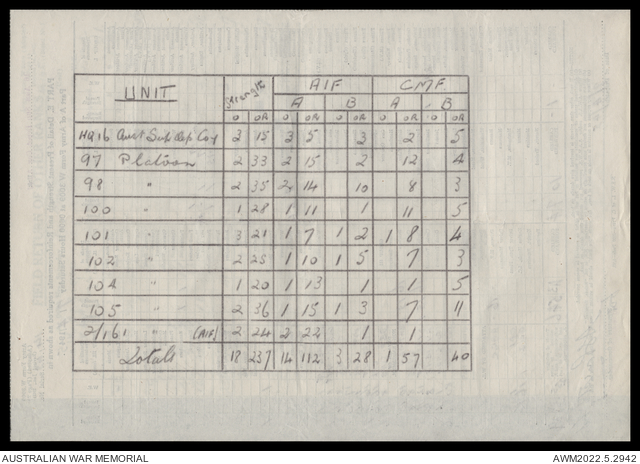 UNIT Strength AIF CMF
A B A B
O OR O OR O OR O OR O OR
HQ 16 Aust Sup Dep Coy 3 15 3 5 3 2 5
97 Platoon 2 33 2 15 2 12 4
98 " 2 35 2 14 10 8 3
100 " 1 28 1 11 1 11 5
101 " 3 21 1 7 1 2 1 8 4
102 " 2 25 1 10 1 5 7 3
104 " 1 20 1 13 1 1 5
105 " 2 36 1 15 1 3 7 11
2/161 " (AIF) 2 24 2 22 1 1
Totals 18 237 14 112 3 28 1 57 40
AUSTRALIAN WAR MEMORIAL AWM2022.5.2942